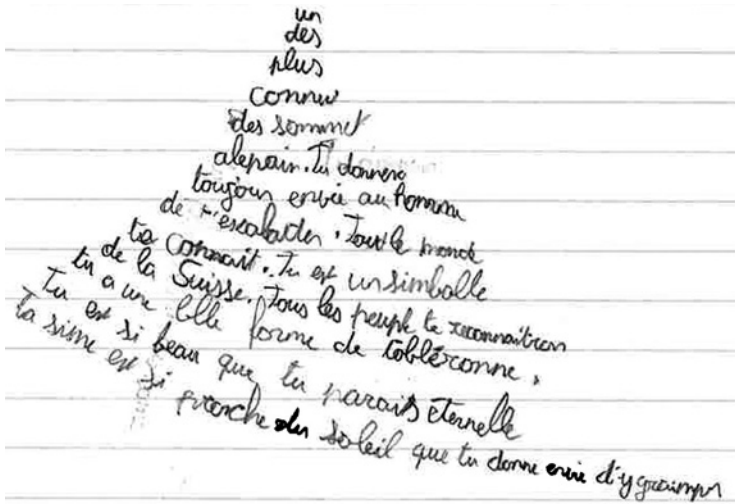 un
des
plus
connu
des sommet
alepain. Tu donnera
toujours envie au homme
de t'escalader. Tout le monde
te connait. Tu est un simballe
de la Suisse. Tous les peuple te reconnaitron
tu a une blle forme de tobléronne.
Tu est si beau que tu parais éternelle
ta sisme est si proche du soleil que tu donne envie d'y graimper